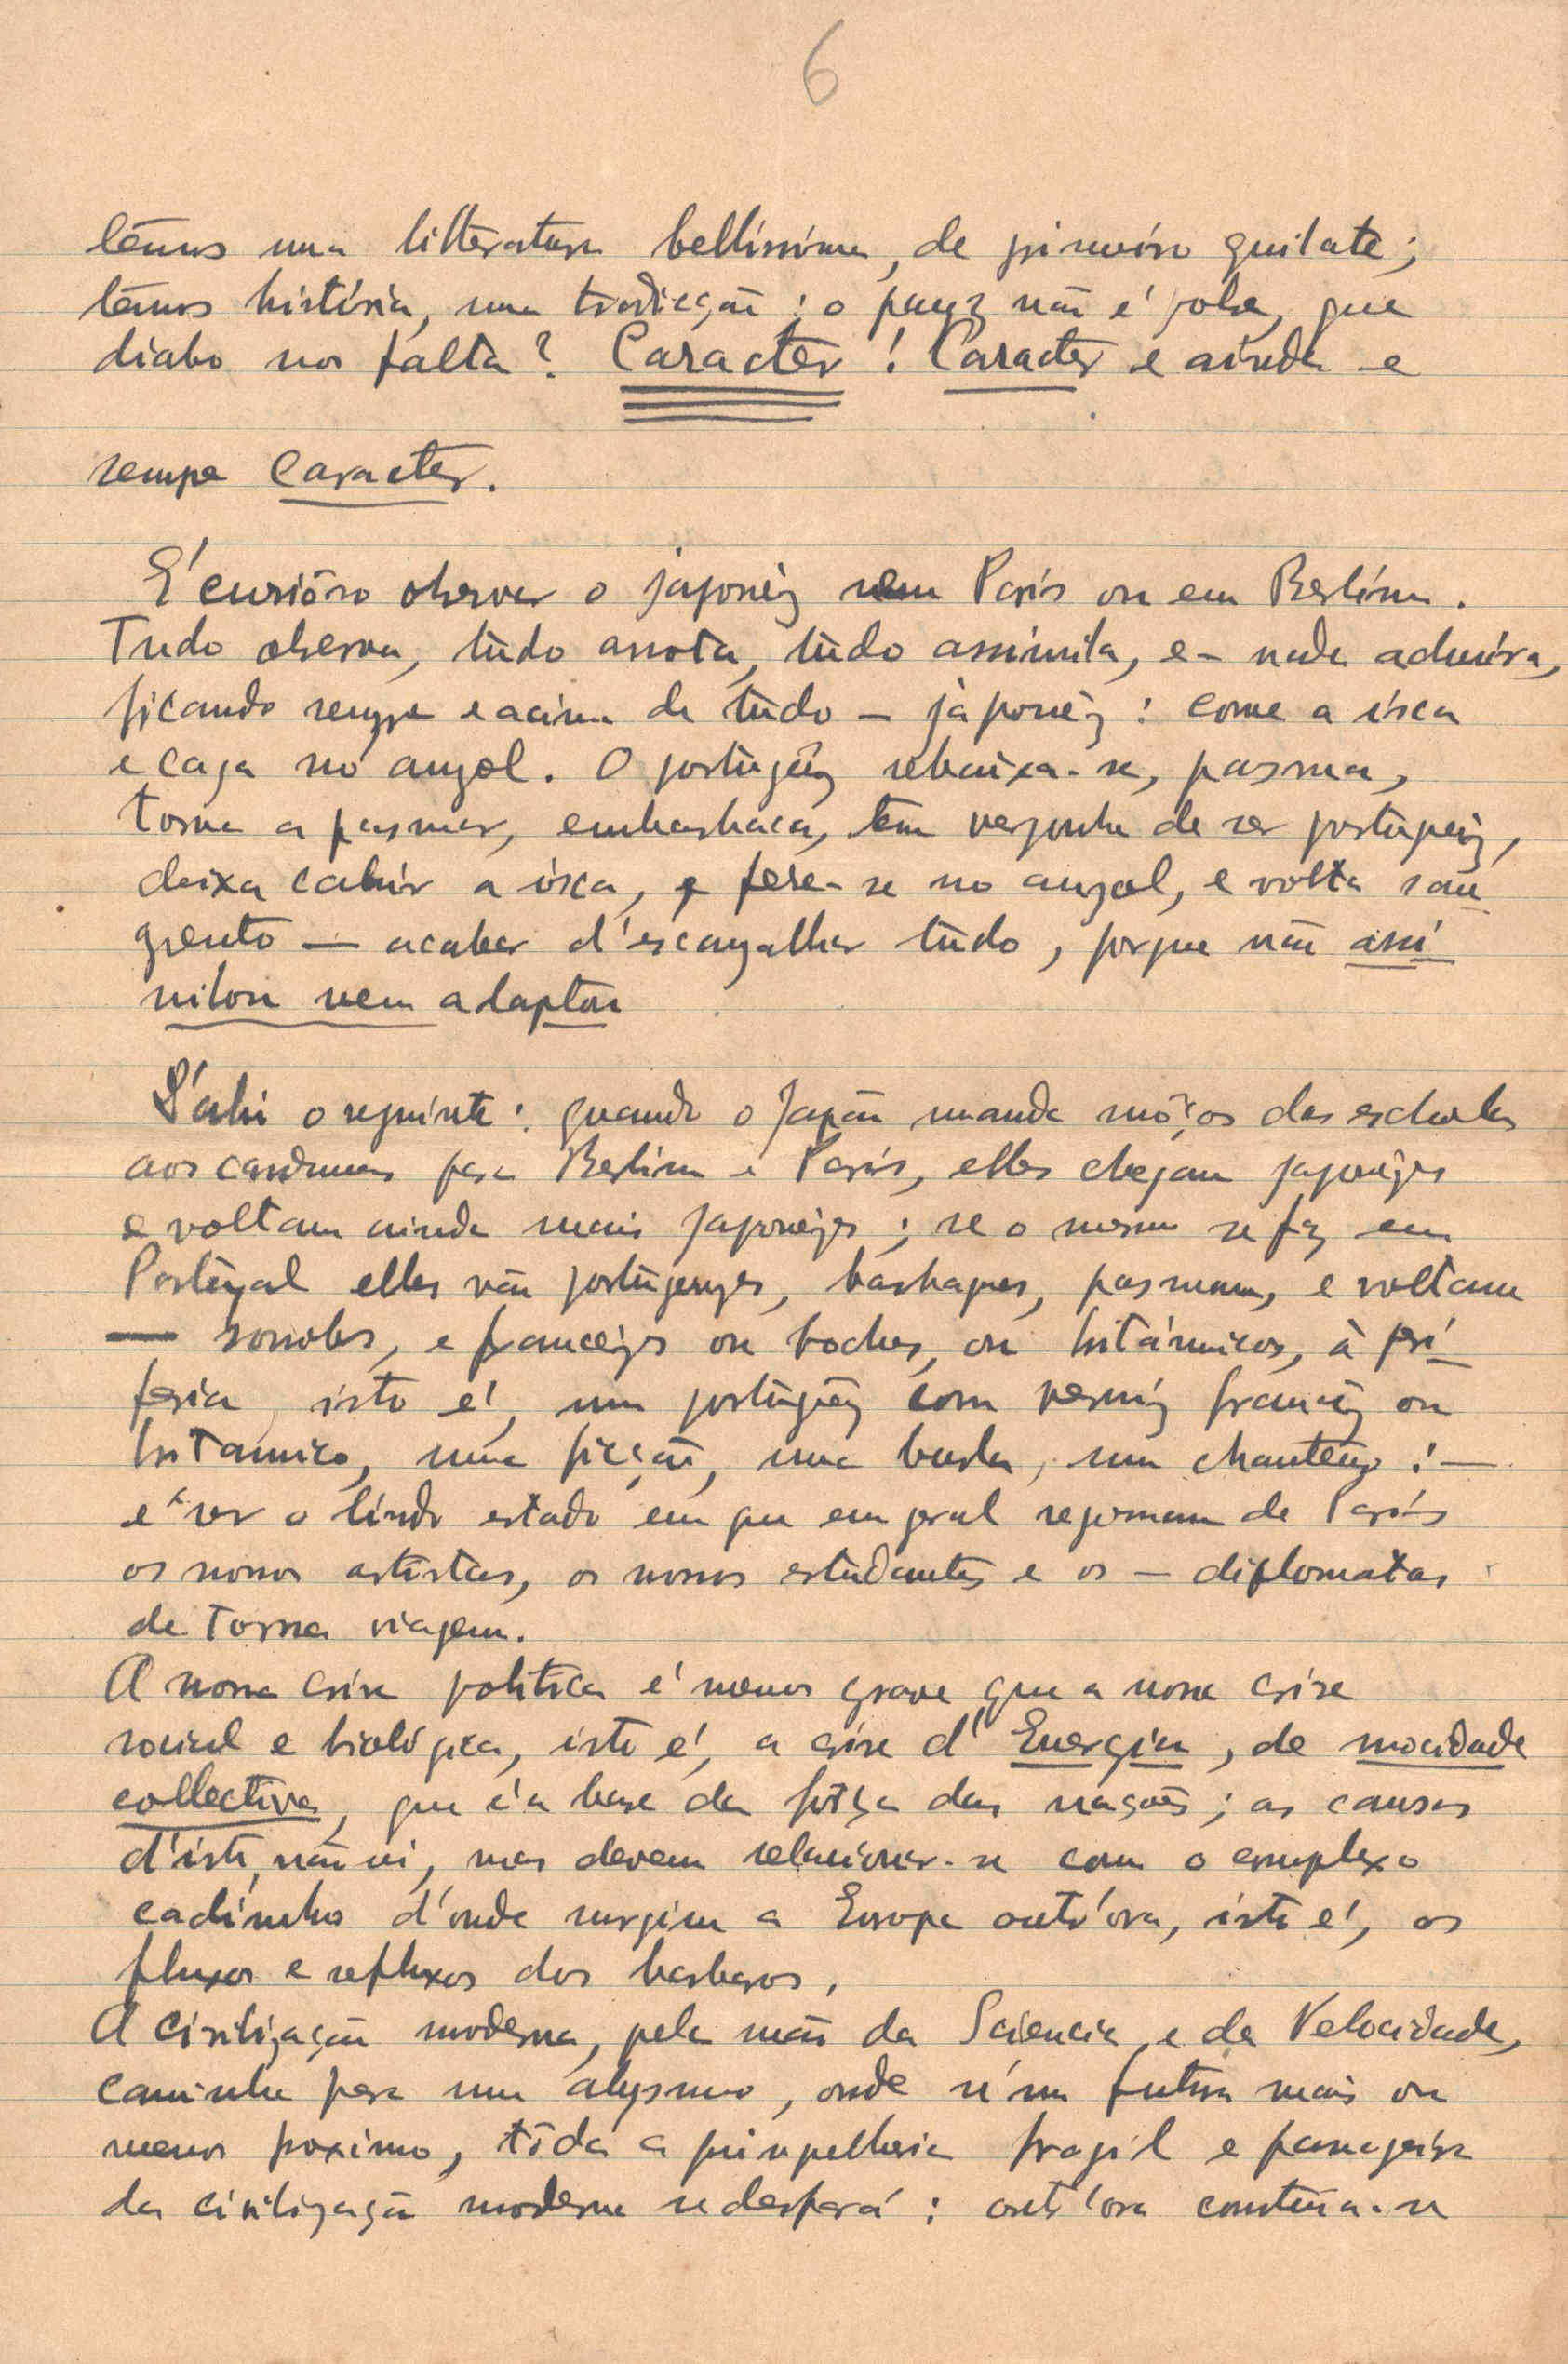 6
têmos uma litteratura bellíssima, de primeiro quilate;
têmos história, uma tradicção; o payz não é pobre, que
diabo nos falta? Caracter! Caracter e ainda e
sempre Caracter.
E' curiôso observar o japonêz em París ou em Berlím.
Tudo observa, tùdo annota, tùdo assimila, e - nada admira,
ficando sempre e acima de tùdo - japonêz: come a ísca
e caga no anzol. O portuguêz rebaixa-se, pasma,
torna a pasmar, embasbaca, tem vergonha de ser portuguêz,
deixa cahir a ísca, e fere-se no anzol, e volta san
grento — acabar d'escangalhar tùdo, porque não assi
milou nem adaptou
D'ahi o seguinte: quando o Japão manda môços das escholas
aos cardumes para Berlim e París, elles chegam japonezes
e voltam ainda mais japonezes; se o mesmo se faz em
Portùgal elles vão portùguezes, basbaques, pasmam, e voltam
snobs, e francezes ou boches, ou británnicos, à peri
feria, isto é, um portùguêz com verníz francêz ou
britannico, uma ficção, uma burla, um :—
é vêr o lindo estado em que em geral regressam de París
os nossos artistas, os nossos estùdantes e os — diplomatas
de torna viagem.
A nossa crise polìtica é menos grave que a nossa crise
social e biológica, isto é, a crise d'Energia, de mocidade
collectiva, que é a base da fôrça das nações; as causas
d'isto, não vi, mas devem relacionar-se com o complexo
cadinho d'onde surgiu a Europa outr'ora, isto é, os
fluxos e refluxos dos barbaros.
A civilização moderna, pela mão da Sciencia e da Velocidade,
caminha para um abysmo, onde n'um futuro mais ou
menos proximo, tôda a frágil e passageira
da civilização moderna se desfará: outr'ora construia-se